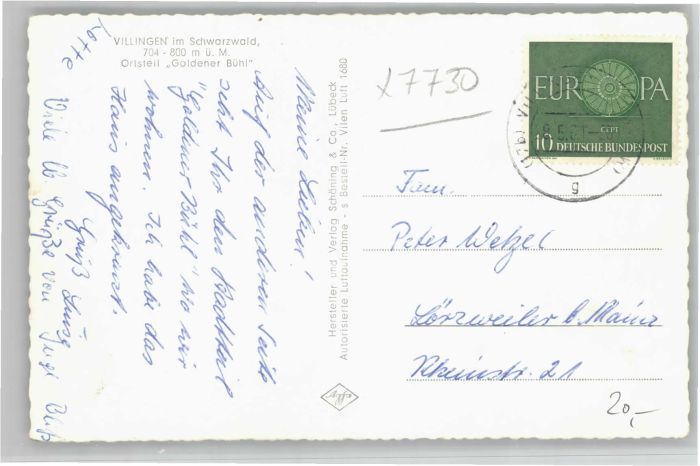 VILLINGEN im Schwarzwald,
704 - 800 m ü. M.
Ortsteil „Goldener Bühl"
Meine Lieben!
Auf der anderen Seite
seht Ihr den Stadtteil
"Goldener Bühl" wo wir
wohnen. Ich habe das
Haus angekreuzt.
Gruß
Viele lb Grüße von
Hersteller und Verlag Schöning & Co., Lübeck
Autorisierte Luftaufnahme - s Bestell-Nr. Vilen Luft 1680
x7730
EUROPA
CEPT
10 DEUTSCHE BUNDESPOST
g
Fam.
Peter Wetzel
Lörzweiler b. Mainz
Rheinstr. 21
20,-